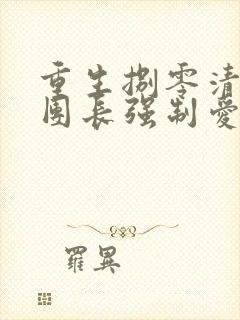 重生捌零清
團長强制愛
羅異